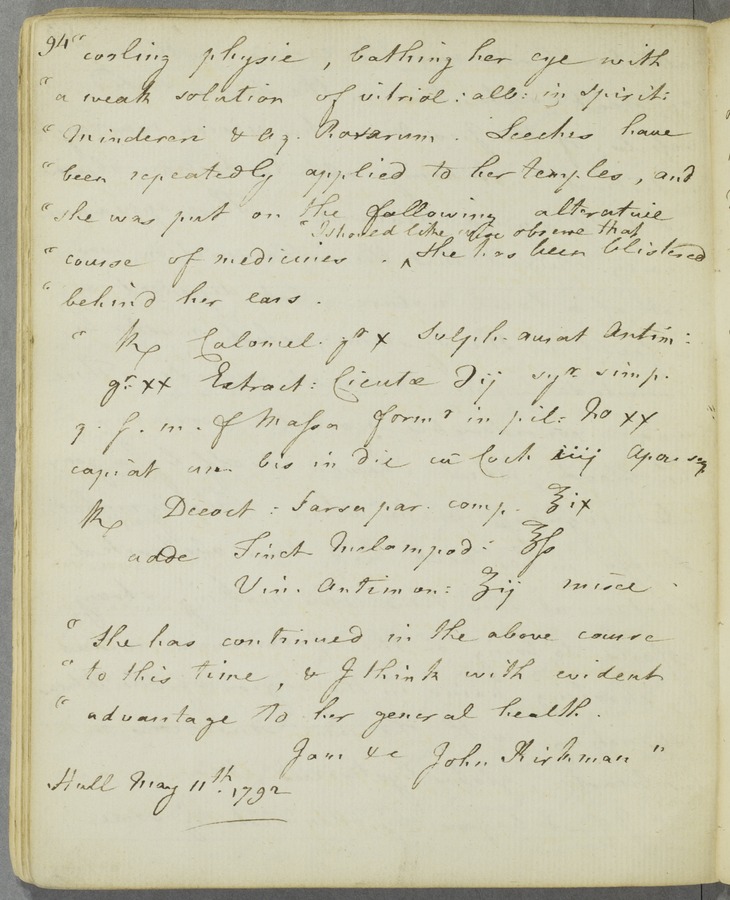 94 " cooling physic, bathing her eye with
" a weak solution of vitriol: alb: in Spirit:
" Mindereri & Aq. Rosarum. Leeches have
" been repeatedly applied to her temples, and
" she was put on the following alterative
" I should like wise observe that
" course of medicines. ^ She has been blistered
" behind her ears.
" ℞ Calomel. gr x Sulph. aurat Antim:
gr. xx Extract: Cicutæ ℈ij syr. simp.
q. s. m. f Massa form r in pil: No xx
capiat un. bis in die cū Coch iiij Apoz. seq.
℞ Decoct: Sarsapar. comp. ℥ix
adde Tinct Melampod: ℥ſs
Vin. Antimon: ʒij misce.
" She has continued in the above course
" to this time, & I think with evident
" advantage to her general health.
I am &c John Kirkman "
Hull May 11th. 1792